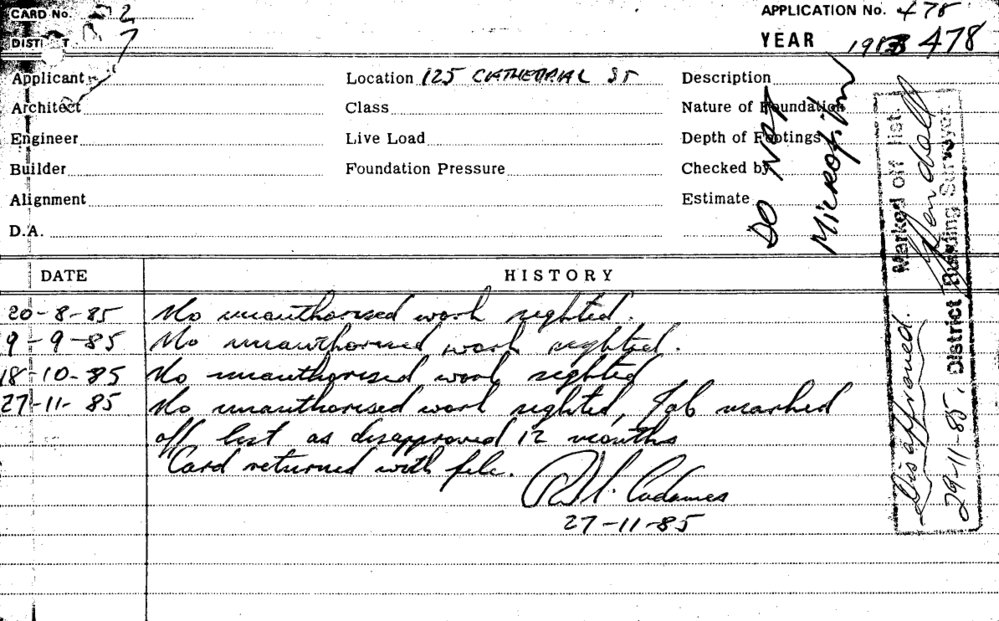 CARD No. 2
APPLICATION No. 478
DISTRICT 7
YEAR 198 478
Applicant
Location 125 CATHEDRAL ST
Description
Architect
Class
Nature of Foundation
Engineer
Live Load
Depth of Footings
Builder
Foundation Pressure
Checked by
Alignment
Estimate
D.A.
DO NOT
Microfilm
DATE HISTORY
20-8-85 No unauthorised work sighted.
9-9-85 No unauthorised work sighted.
18-10-85 No unauthorised work sighted
27-11-85 No unauthorised work sighted, Job marked
off list as disapproved 12 months
Card returned with file.
27-11-85
Disapproved Marked off list.
29-11-85. District Building Surveyor.